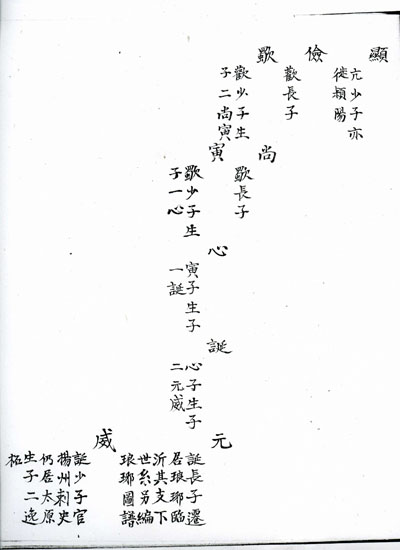 顯
亢少子亦
徙潁陽
儉
歡長子
歜
歡少子生
子二尚寅
尚
歜長子
寅
歜少子生
子一心
心
寅子生子
一誕
誕
心子生子
二元威
元
誕長子遷
居琅琊臨
沂其支下
世系另編
琅琊圖譜
威
誕少子官
揚州刺史
仍居太原
生子二逸
柘